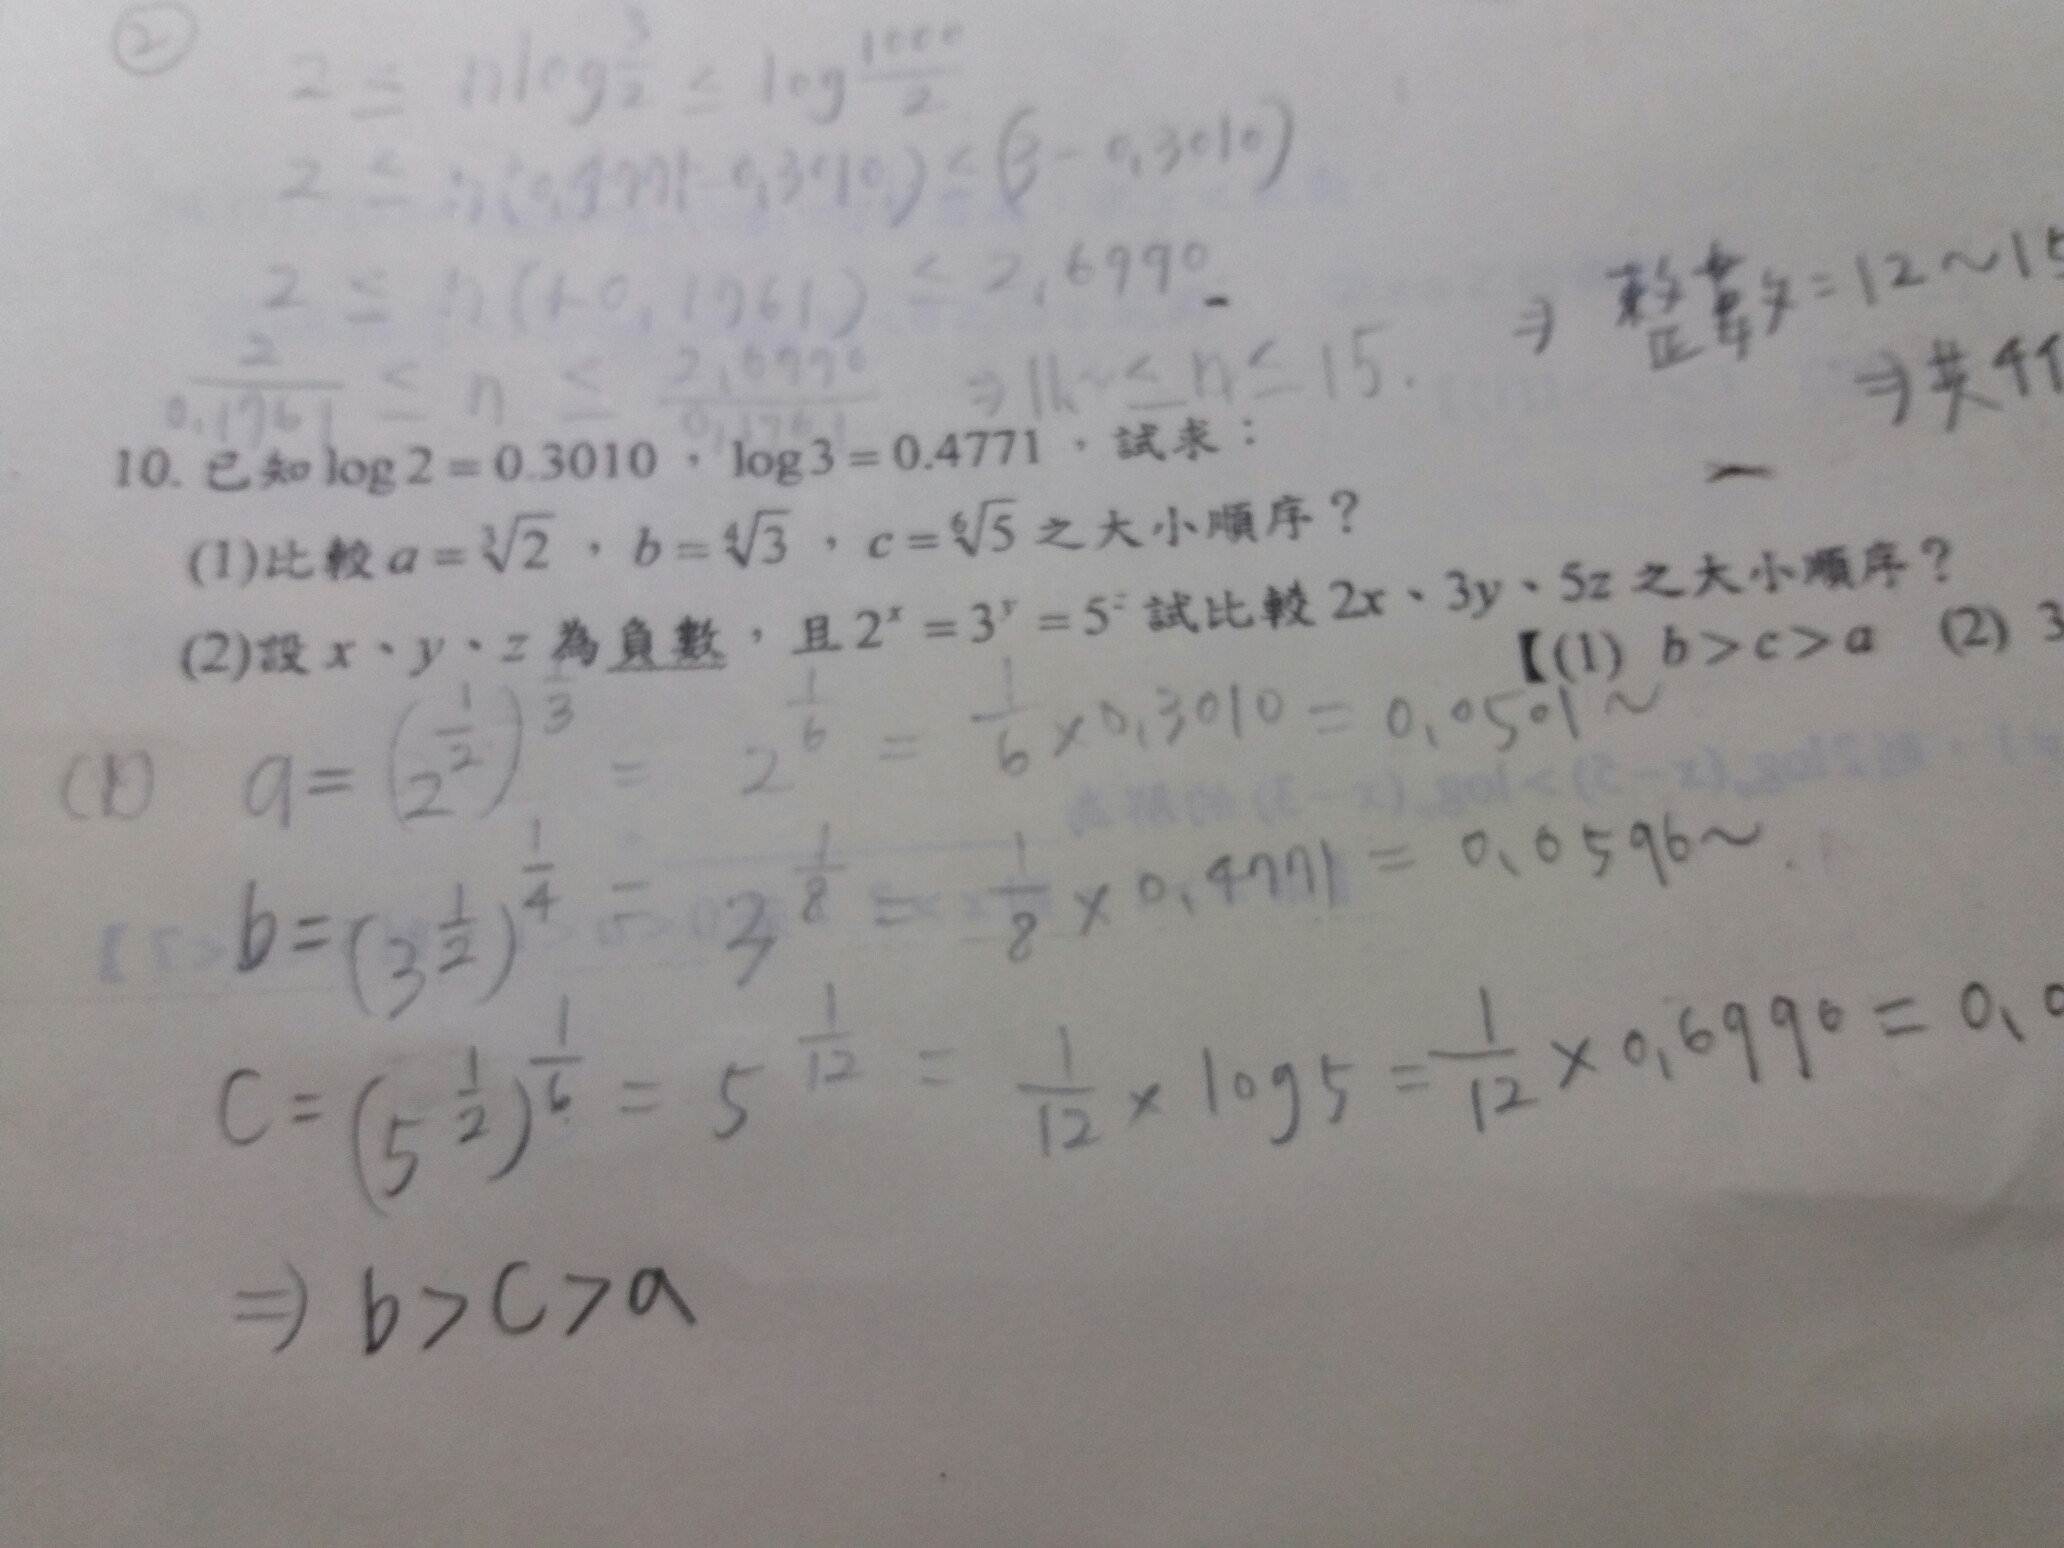 ②
2 ≤ nlog 3/2 ≤ log 1000/2
2 ≤ n(0.4771-0.3010) ≤ (3-0.3010)
2 ≤ n(0.1761) ≤ 2.6990
2/0.1761 ≤ n ≤ 2.6990/0.1761 ⇒ 11~ ≤ n ≤ 15.
⇒ 整數=12~15
⇒共4個
10. 已知 log 2 = 0.3010，log 3 = 0.4771，試求：
(1)比較 a = ³√2，b = ⁴√3，c = ⁶√5 之大小順序？
(2)設 x、y、z 為負數，且 2ˣ = 3ʸ = 5ᶻ 試比較 2x、3y、5z 之大小順序？
【(1) b > c > a (2) 3
(1) a = (2^(1/2))^(1/3) = 2^(1/6) = 1/6 × 0.3010 = 0.0501~
b = (3^(1/2))^(1/4) = 3^(1/8) = 1/8 × 0.4771 = 0.0596~
C = (5^(1/2))^(1/6) = 5^(1/12) = 1/12 × log5 = 1/12 × 0.6990 = 0.0
⇒ b > C > a